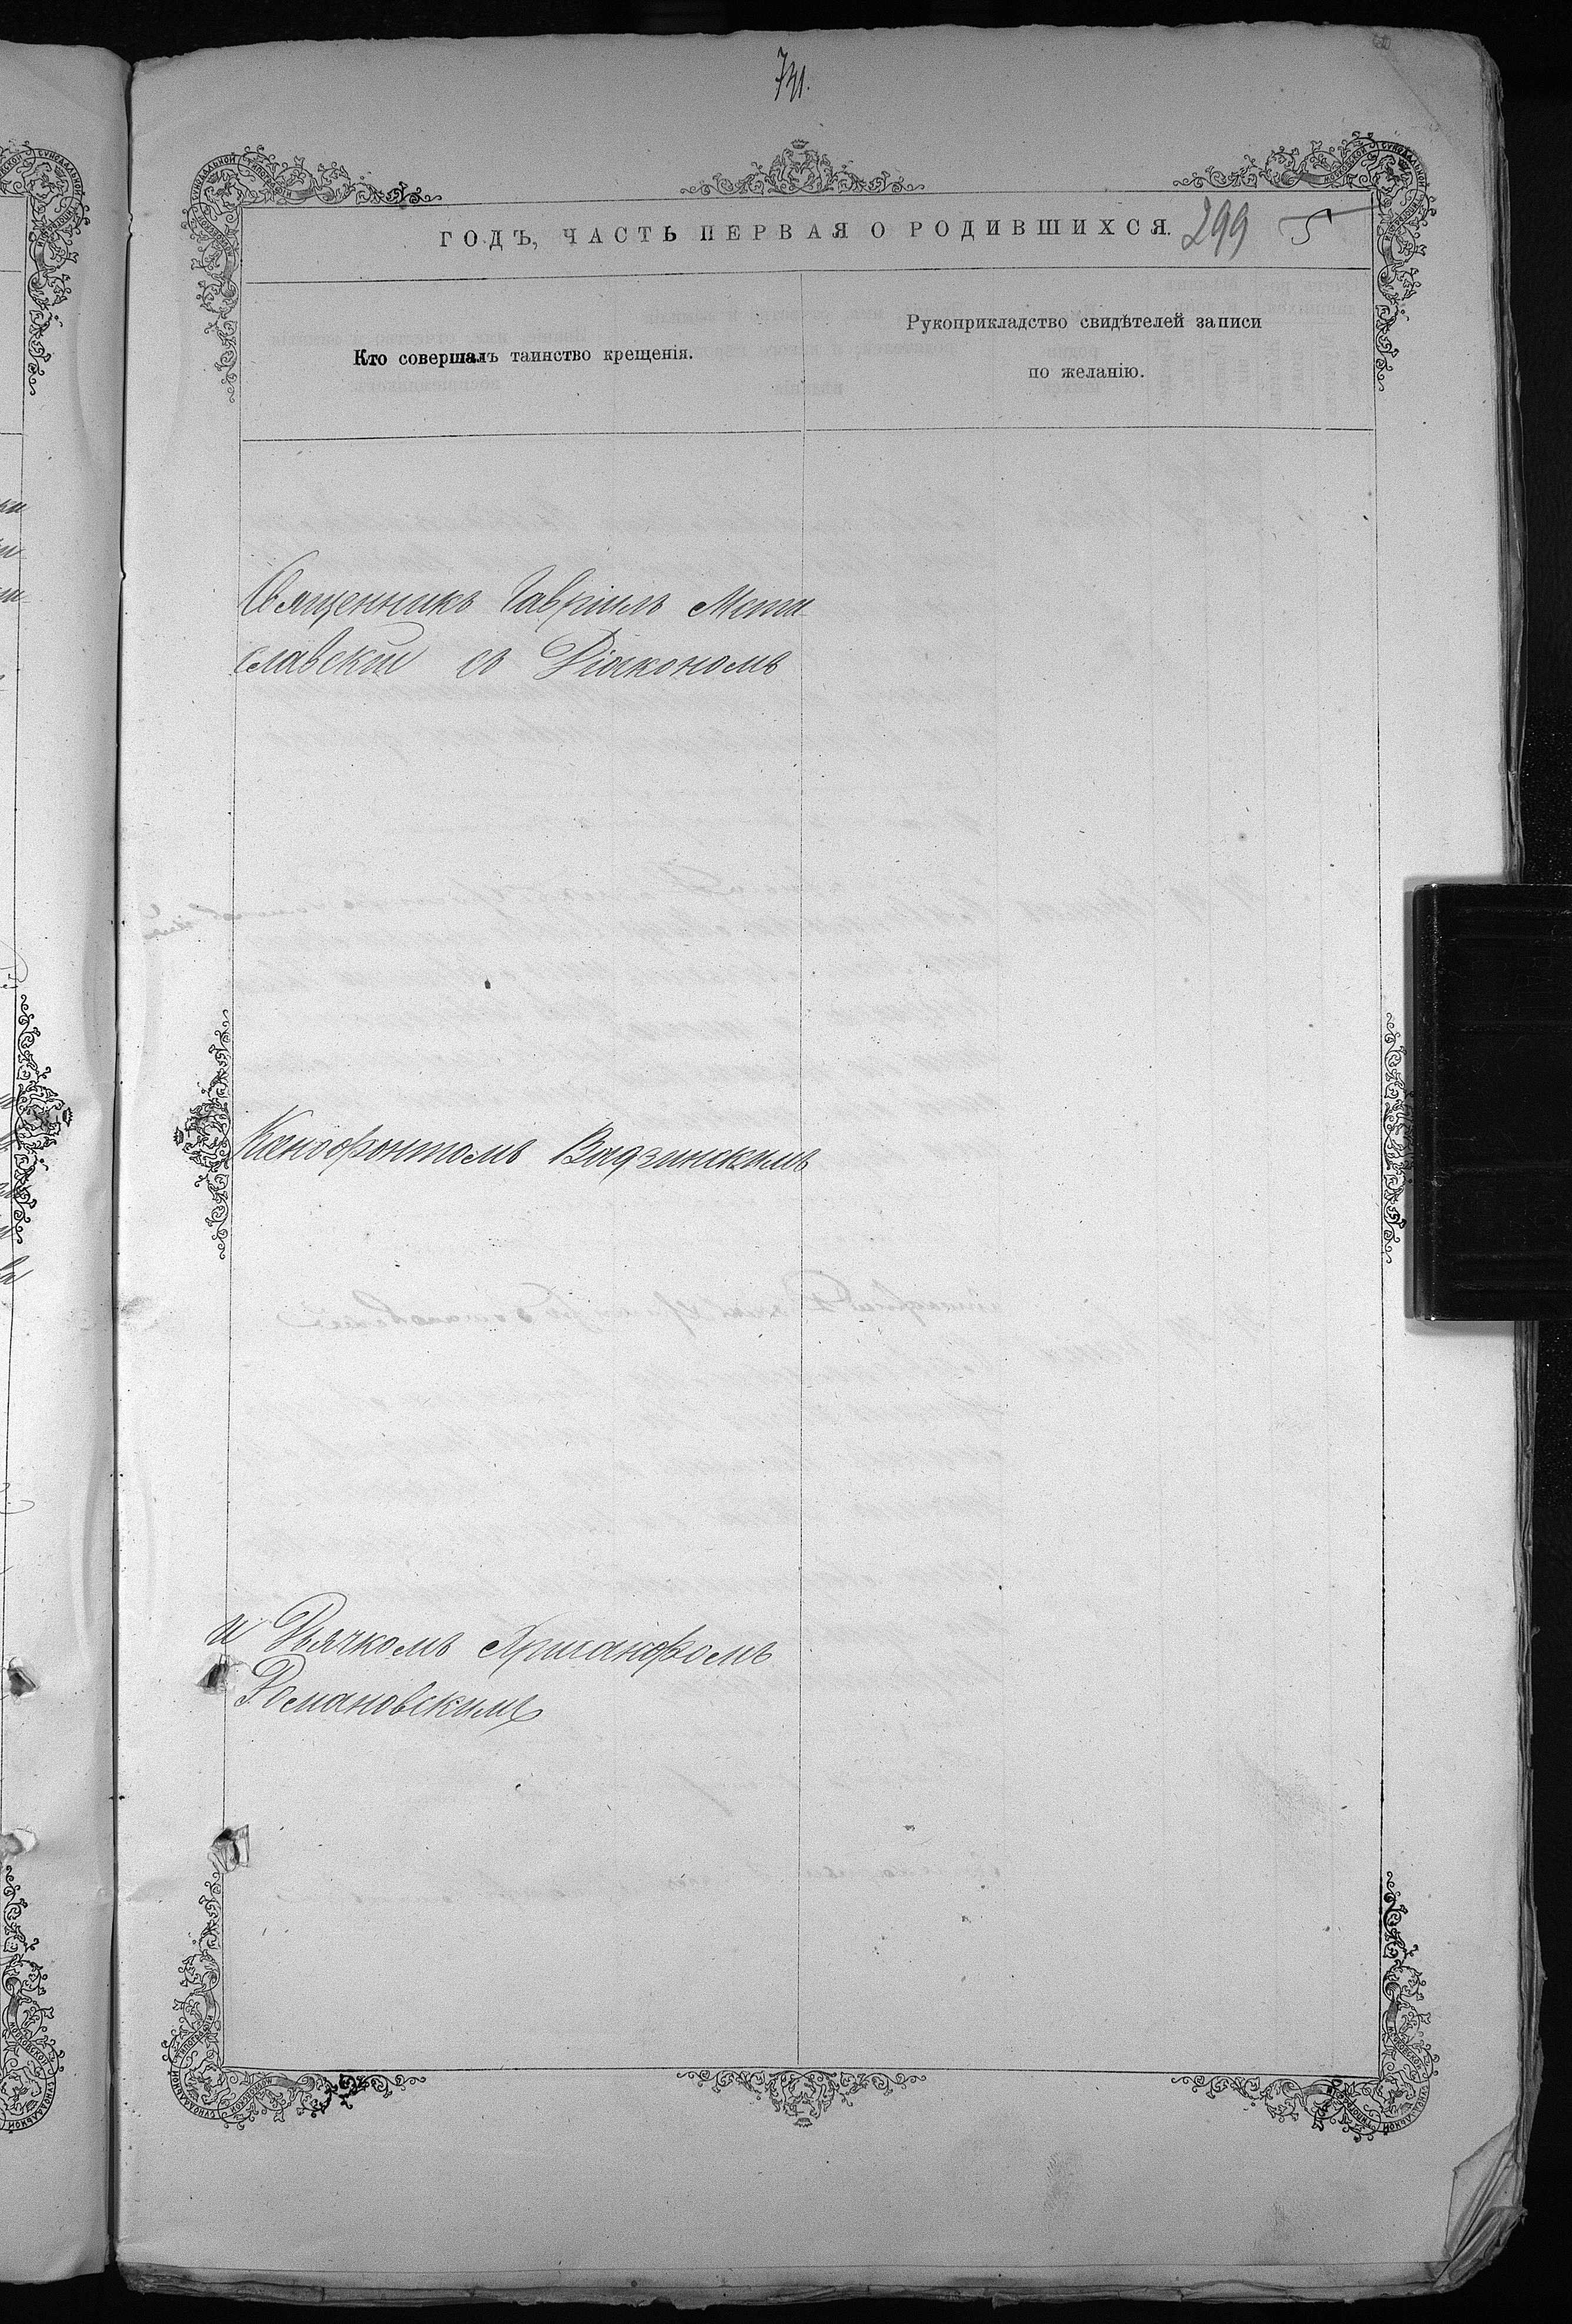 741.
ГОДЪ, ЧАСТЬ ПЕРВАЯ О РОДИВШИХСЯ. 299 5
Кто совершалъ таинство крещенія.
Рукоприкладство свидѣтелей записи
по желанію.
Священникъ Гавріилъ Мсти-
славскій съ Діакономъ
Ксенофонтомъ Вадзинскимъ
и Дьячкомъ Хрисанфомъ
Романовскимъ